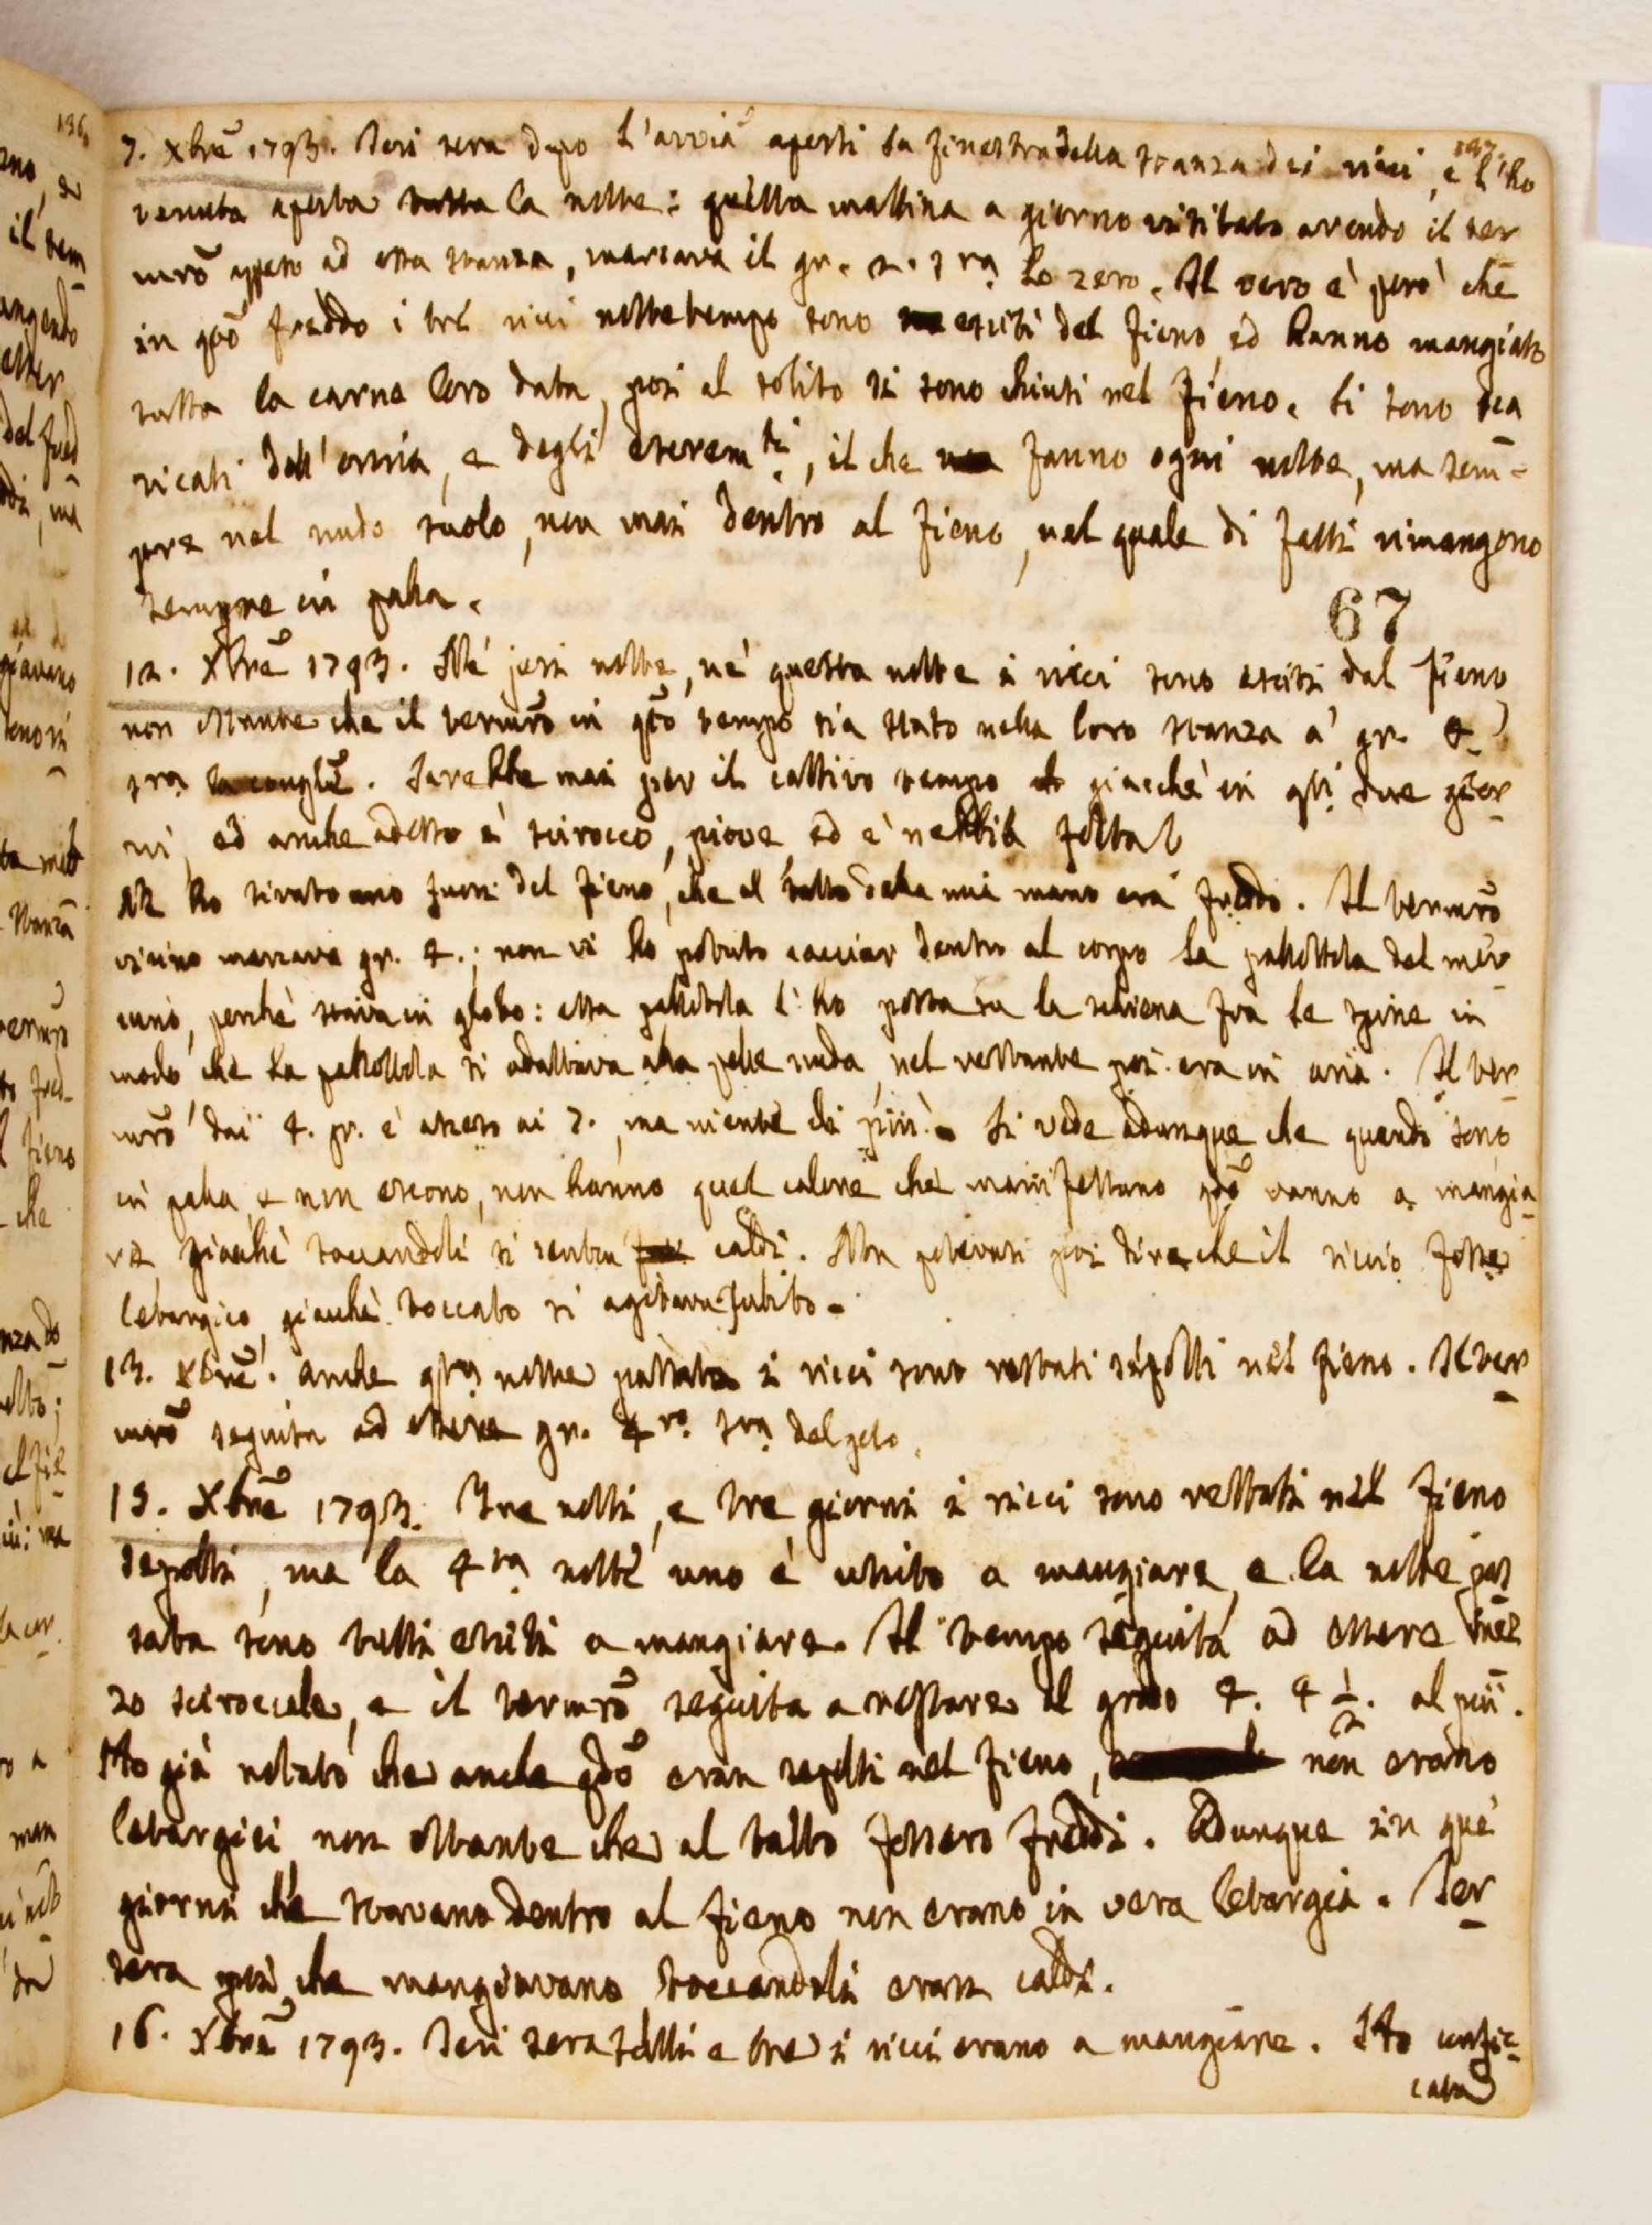 137.
7. Xbrẽ 1793. Jeri sera dopo l'avvia aperti la finestra della stanza dei ricci, e l'ho
tenuta aperta tutta la notte: questa mattina a giorno visitato avendo il ter
mrõ appeso ad essa stanza, marcava il gr. 2. sra lo zero. Il vero è però che
in qtõ freddo i tre ricci nottetempo sono esciti del fieno, ed hanno mangiato
tutta la carne loro data, poi al solito si sono chiusi nel fieno. Si sono sca
ricati dell'orina, e degli escremti, il che fanno ogni notte, ma sem-
pre nel nudo suolo, non mai dentro al fieno, nel quale di fatti rimangono
sempre in palla.
67
12. Xbrẽ 1793. Nè jeri notte, nè questa notte i ricci sono esciti dal fieno
non ostante che il termrõ in qtõ tempo sia stato nella loro stanza a' gr. 4
sra la conglẽ. Sarebbe mai per il cattivo tempo giacchè in qti due gior
ni, ed anche adesso è scirocco, piove, ed è nebbia folta?
Ne ho tirato uno fuori del fieno, che al tatto della mia mano era freddo. Il termrõ
vicino marcava gr. 4.; non vi ho potuto cacciar dentro al corpo la pallottola del mer
curio, perchè stava in globo: essa pallottola l'ho posta su la schiena fra le spine in
modo che la pallottola si adattava alla pelle nuda, nel restante poi era in aria. Il ter
mrõ dai 4. gr. è asceso ai 7., ma niente di più. Si vede adunque che quando sono
in palla, e non escono, non hanno quel calore che manifestano qdõ vanno a mangia
re, giacchè toccandoli si senton caldi. Non potevasi poi dire che il riccio fosse
letargico, giacchè toccato si agitava subito.
13. Xbrẽ. Anche qta notte passata i ricci sono restati sepolti nel fieno. Il ter
mrõ seguita ad essere gr. 4ro sra del gelo.
15. Xbrẽ 1793. Tre notti, e tre giorni i ricci sono restati nel fieno
sepolti, ma la 4ta notte uno è uscito a mangiare, e la notte pas
sata sono tutti esciti a mangiare. Il tempo seguita ad essere mez
zo sciroccale, e il termrõ seguita a restare al grado 4. 4 1/2. al più.
Ho già notato che anche qdõ eran sepolti nel fieno, non erano
letargici non ostante che al tatto fossero freddi. Adunque in que'
giorni che stavano dentro al fieno non erano in vera letargia. Jer
sera poi che mangiavano toccandoli eran caldi.
16. Xbrẽ 1793. Jeri sera tutti e tre i ricci erano a mangiare. Ho confic
cata